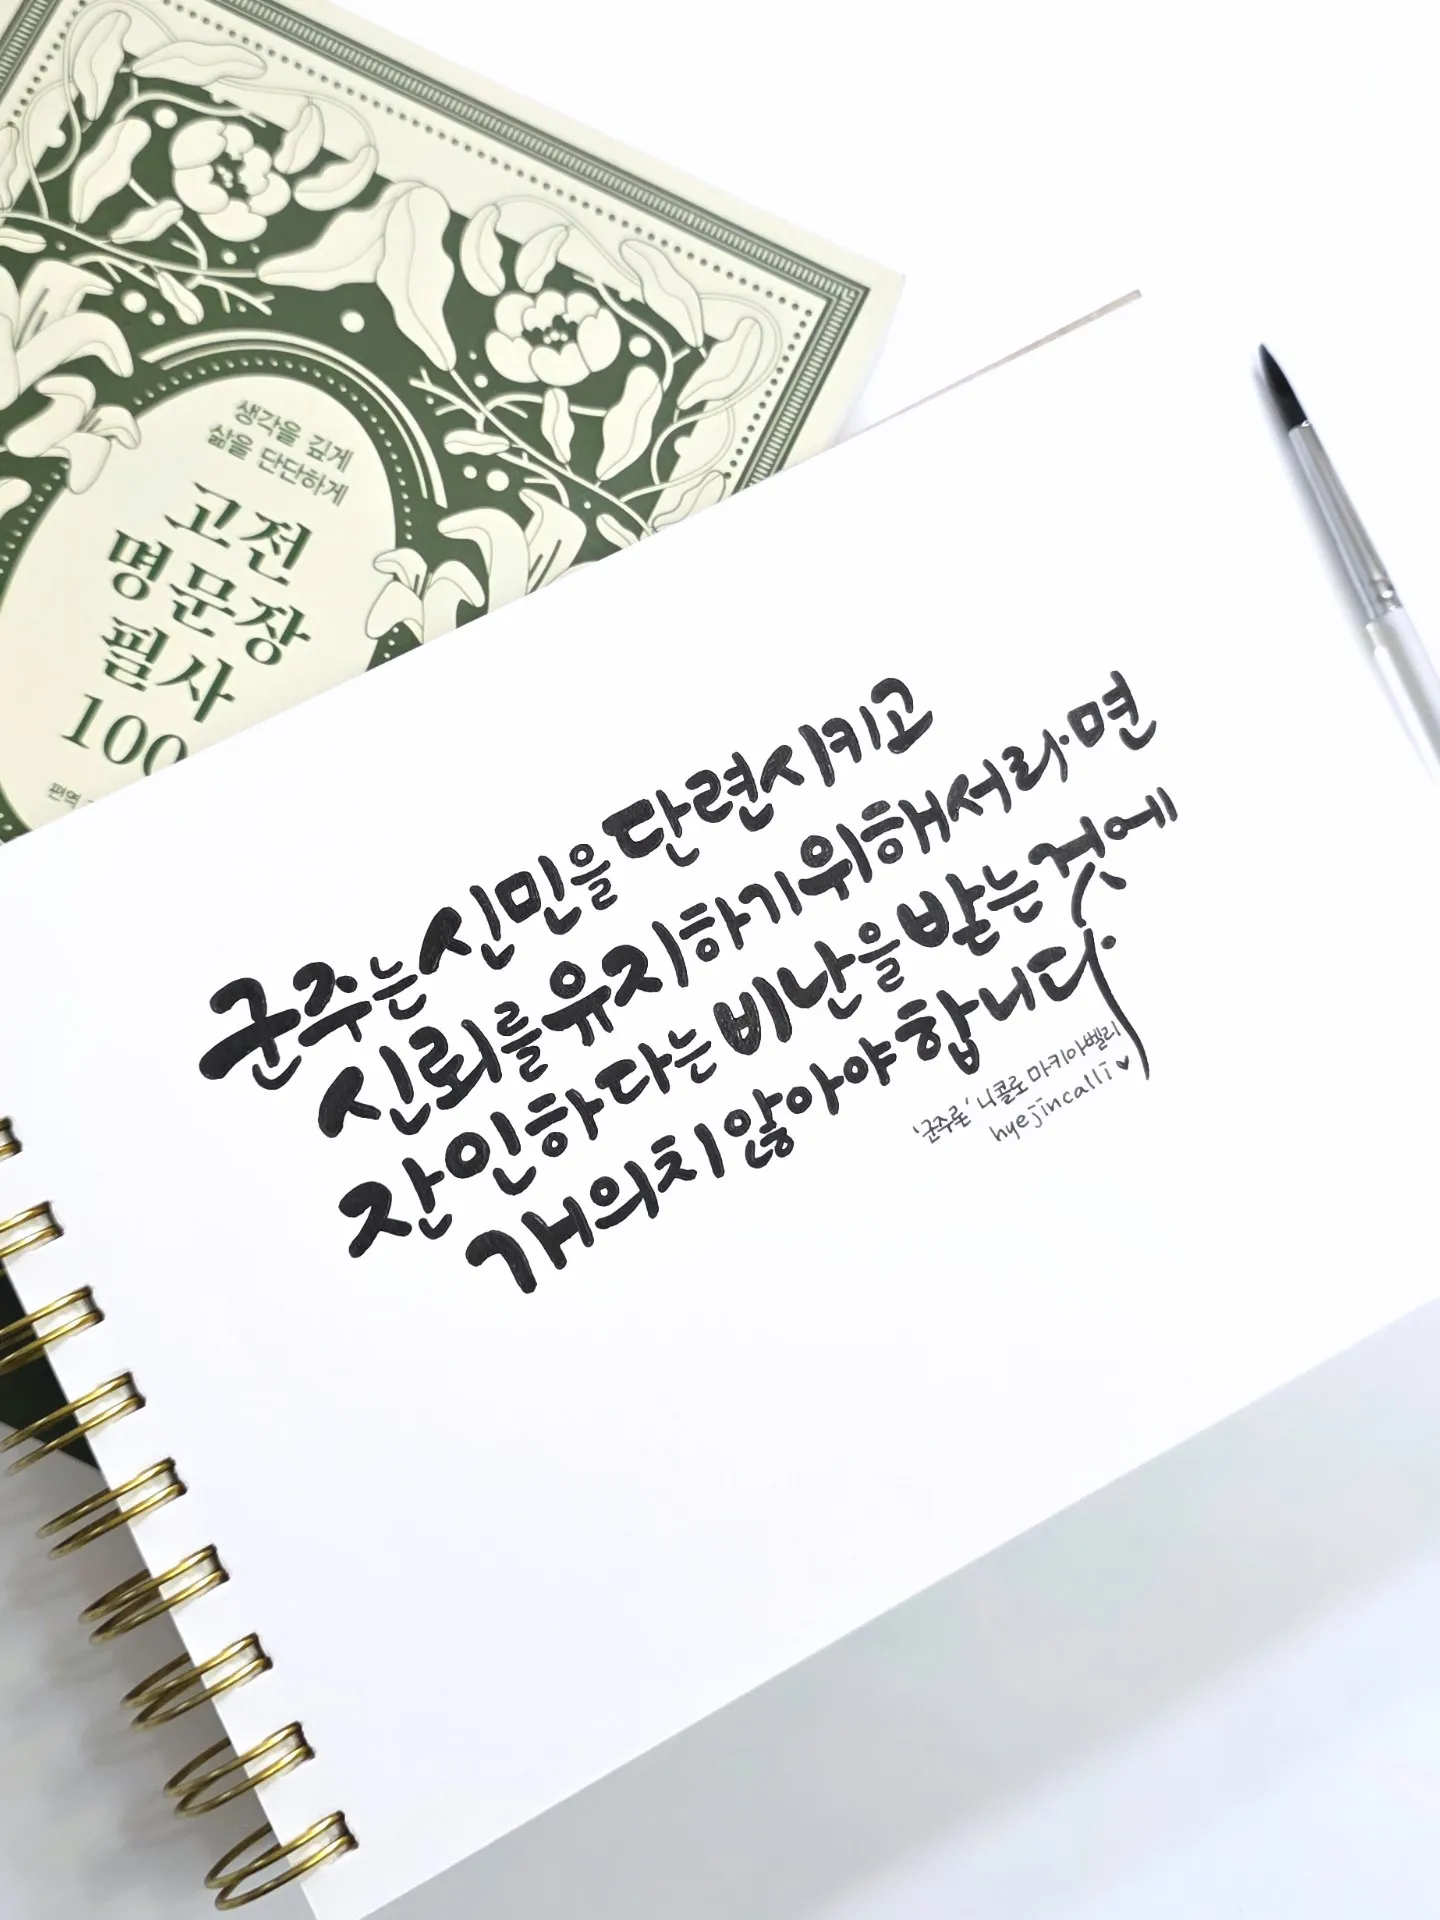 생각을 깊게
삶을 단단하게
고전
명문장
필사
100
편역
군주는 신민을 단련시키고
신뢰를 유지하기 위해서라면
잔인하다는 비난을 받는 것에
개의치 않아야 합니다.
'군주론' 니콜로 마키아벨리
hyejincalli ♥